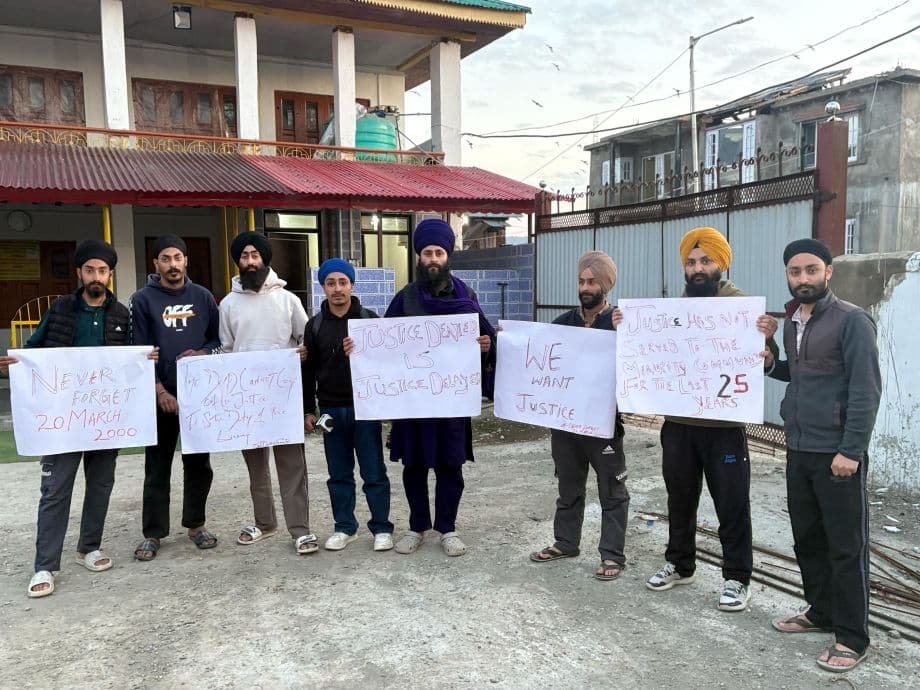 NEVER
FORGET
20 MARCH
2000
OFF
THE DEAD CANNOT CRY
OUT FOR JUSTICE
IT IS THE DUTY OF THE
LIVING
JUSTICE DENIED
IS
JUSTICE DELAYED
WE
WANT
JUSTICE
JUSTICE HAS NOT
SERVED TO THE
MINORITY COMMUNITY
FOR THE LAST 25
YEARS